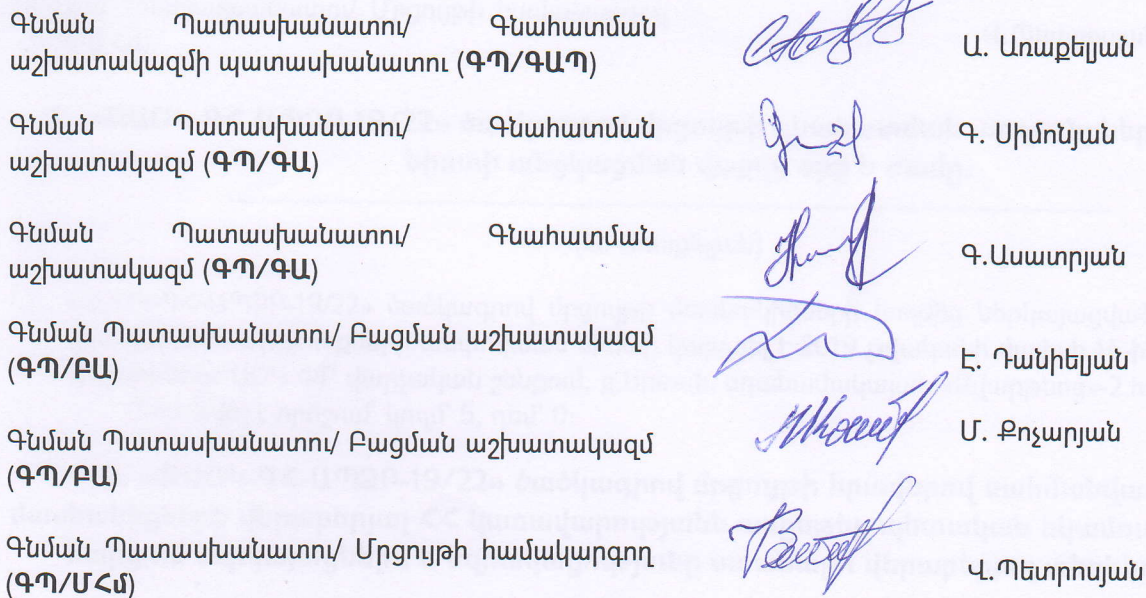 Գնման Պատասխանատու/ Գնահատման
աշխատակազմի պատասխանատու (ԳՊ/ԳԱՊ)
Ա. Առաքելյան
Գնման Պատասխանատու/ Գնահատման
աշխատակազմ (ԳՊ/ԳԱ)
Գ. Սիմոնյան
Գնման Պատասխանատու/ Գնահատման
աշխատակազմ (ԳՊ/ԳԱ)
Գ.Ասատրյան
Գնման Պատասխանատու/ Բացման աշխատակազմ
(ԳՊ/ԲԱ)
Է. Դանիելյան
Գնման Պատասխանատու/ Բացման աշխատակազմ
(ԳՊ/ԲԱ)
Մ. Քոչարյան
Գնման Պատասխանատու/ Մրցույթի համակարգող
(ԳՊ/ՄՀմ)
Վ.Պետրոսյան